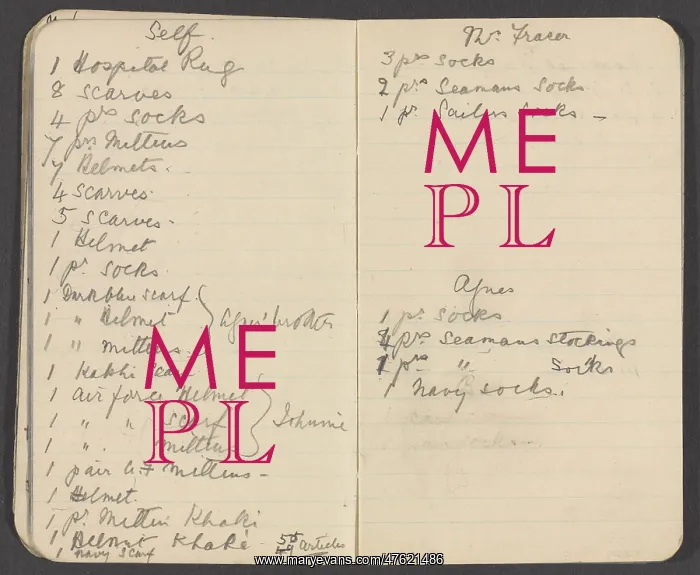 Self.
1 Hospital Rug
8 Scarves
4 prs Socks
7 prs Mittens
7 Helmets.
4 Scarves.
5 Scarves.
1 Helmet
1 pr Socks.
1 Dark blue scarf.
1 " Helmet
1 " mittens.
Agnes' brother
1 Kakhi
1 air force Helmet
1 " " Scarf
1 ". Mittens
Johnnie
1 pair A.F Mittens -
1 Helmet.
1 pr Mittens Khaki
1 Helmet Khaki - 55
1 Navy Scarf articles
Mrs. Fracer
3 prs Socks
2 prs Seamans Socks
1 pr Sailors Socks -
Agnes
1 pr Socks
4 prs Seamans Stockings
1 prs " Socks
1 Navy socks.
ME
PL
ME
PL
www.maryevans.com/47621486